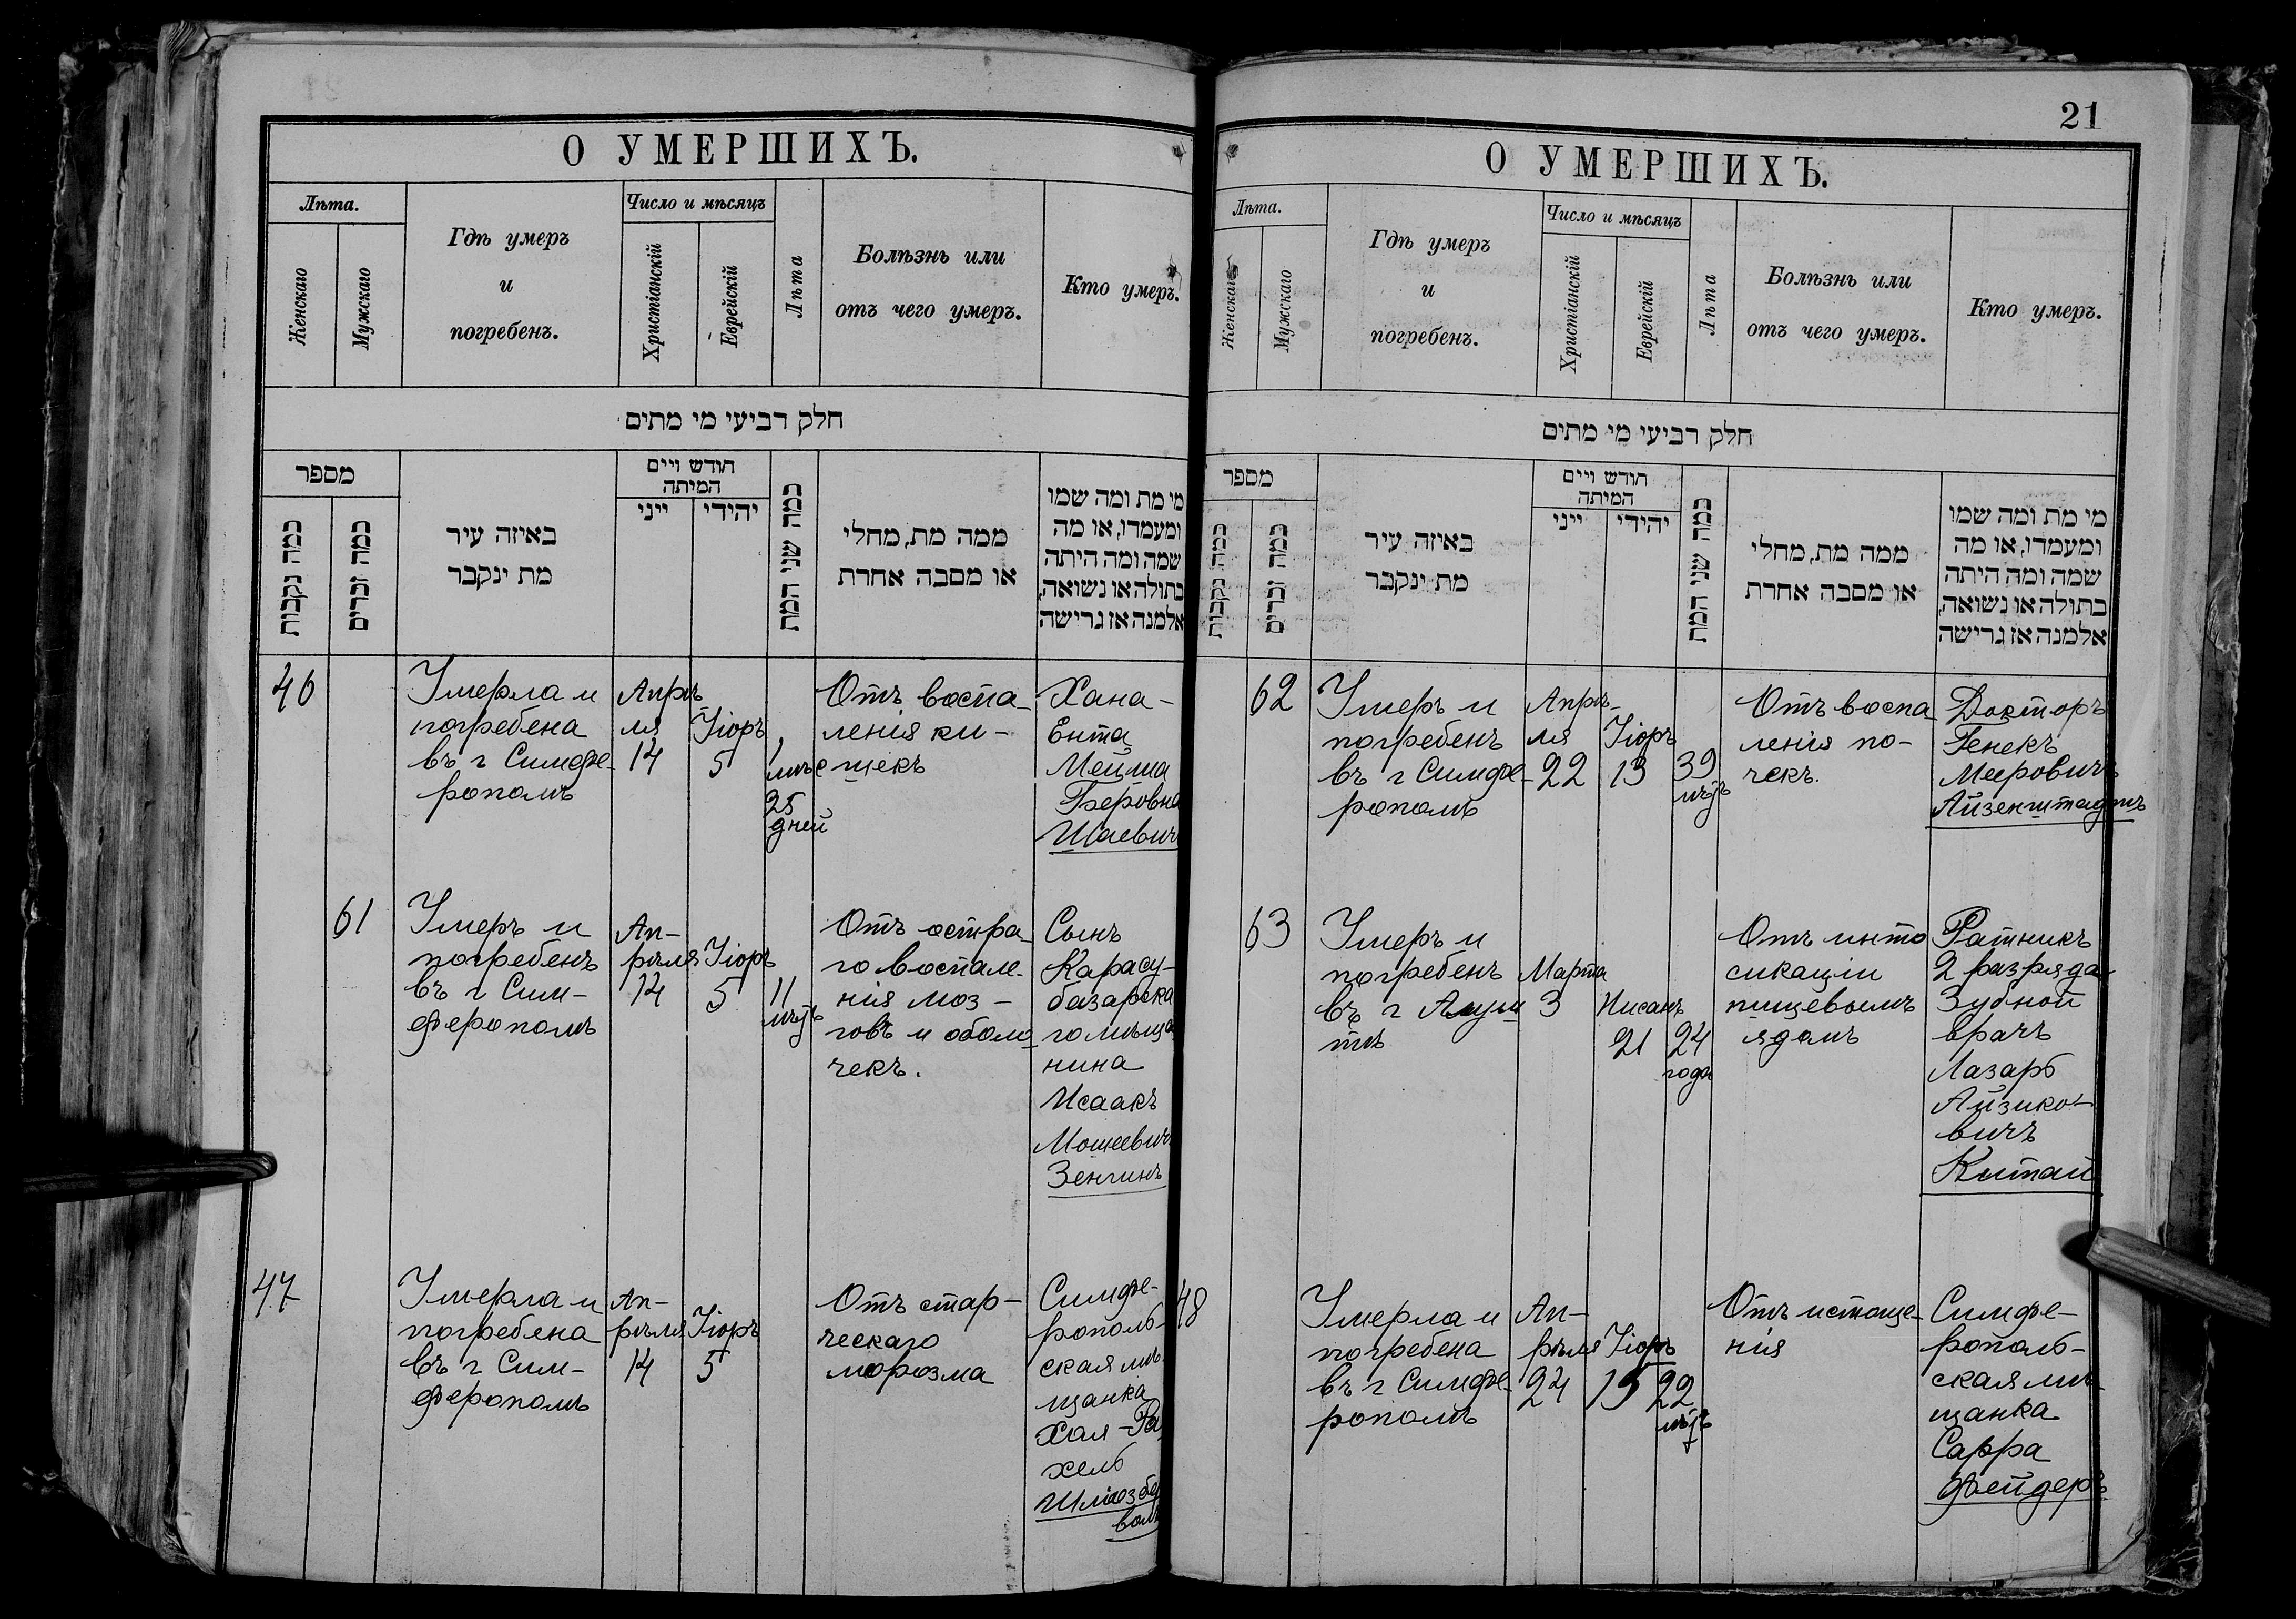 21
О УМЕРШИХЪ.
Лѣта.
Женскаго
Мужскаго
Гдѣ умеръ
и
погребенъ.
Число и мѣсяцъ
Христіанскій
Еврейскій
Лѣта
Болѣзнь или
отъ чего умеръ.
Кто умеръ.
חלק רביעי מי מתים
מספר
כמה נקבות
כמה זכרים
באיזה עיר
מת ינקבר
חודש ויים
המיתה
ייני
יהידי
כמה שני המת
ממה מת, מחלי
או מסבה אחרת
מי מת ומה שמו
ומעמדו, או מה
שמה ומה היתה
בתולה או נשואה,
אלמנה אז גרישה
46
Умерла и
погребена
въ г Симфе-
рополѣ
Апрѣ
ля
14
Іюръ
5
1
мѣс
25
дней
Отъ воспа-
ленія ки-
шекъ
Хана-
Ента
Мейма
Беровна
Шаевич
61
Умеръ и
погребенъ
въ г Сим-
ферополѣ
Ап-
рѣля
14
Іюръ
5
11
лѣтъ
Отъ остра-
го воспале-
нія моз-
говъ и оболо-
чекъ.
Сынъ
Карасу-
базарска
го мѣща
нина
Исаакъ
Мошеевичъ
Зенгинъ
47
Умерла и
погребена
въ г Сим-
ферополѣ
Ап-
рѣля
14
Іюръ
5
Отъ стар-
ческаго
морозма
Симфе-
рополь-
ская мѣ-
щанка
Хая-Ра
хель
О УМЕРШИХЪ.
Лѣта.
Женскаго
Мужскаго
Гдѣ умеръ
и
погребенъ.
Число и мѣсяцъ
Христіанскій
Еврейскій
Лѣта
Болѣзнь или
отъ чего умеръ.
Кто умеръ.
חלק רביעי מי מתים
מספר
כמה נקבות
כמה זכרים
באיזה עיר
מת ינקבר
חודש ויים
המיתה
ייני
יהידי
כמה שני המת
ממה מת, מחלי
או מסבה אחרת
מי מת ומה שמו
ומעמדו, או מה
שמה ומה היתה
בתולה או נשואה,
אלמנה אז גרישה
62
Умеръ и
погребенъ
въ г Симфе-
рополѣ
Апрѣ-
ля
22
Іюръ
13
39
лѣтъ
Отъ воспа
ленія по-
чекъ.
Докторъ
Генекъ
Мееровичъ
Айзенштадтъ
63
Умеръ и
погребенъ
въ г Алуш
тѣ
Марта
3
Нисанъ
21
24
года
Отъ инто
сикаціи
пищевымъ
ядомъ
Ратникъ
2 разряда-
Зубной
врачъ
Лазарь
Айзико-
вичъ
Китай
48
Умерла и
погребена
въ г Симфе-
рополѣ
Ап-
рѣля
24
Іюръ
15
22
лѣтъ
Отъ истоще-
нія
Симфе-
рополь-
ская мѣ-
щанка
Сарра
Фейдеръ